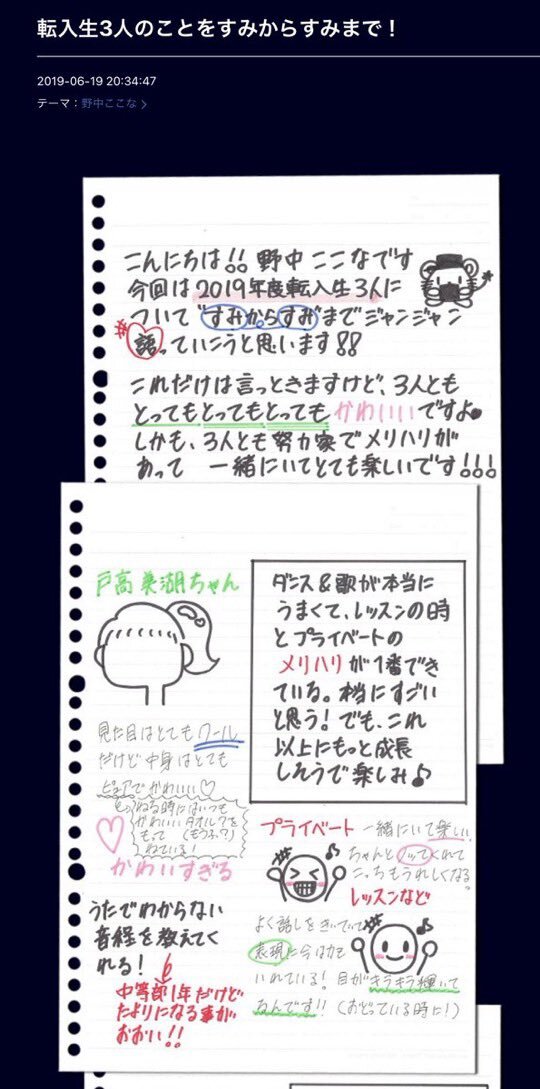 転入生3人のことをすみからすみまで！
2019-06-19 20:34:47
テーマ：野中ここな
こんにちは!! 野中 ここなです
今回は2019年度転入生3人に
ついて"すみからすみ"までジャンジャン
語っていこうと思います!!
これだけは言っときますけど、3人とも
とってもとってもとっても かわいいですよ
しかも、3人とも努力家でメリハリが
あって 一緒にいてとても楽しいです!!!
戸高美湖ちゃん
ダンス&歌が本当に
うまくて、レッスンの時
とプライベートの
メリハリが1番でき
ている。本当にすごい
と思う! でも、これ
以上にもっと成長
しそうで楽しみ♪
見た目はとてもクール
だけど中身はとても
ピュアでかわいい♡
ねる時にはいつも
かわいいタオルケを
もって(もうふ?)
ねている!
かわいすぎる
うたでわからない
音程を教えてく
れる!
中等部1年だけど
たよりになる事が
おおい!!
プライベート 一緒にいて楽しい。
ちゃんとノッてくれて
こっちもうれしくなる。
レッスンなど
よく話しをきいていて
表現に今は力を
いれている! 目がキラキラ輝いて
るんです!! (おどっている時に!)